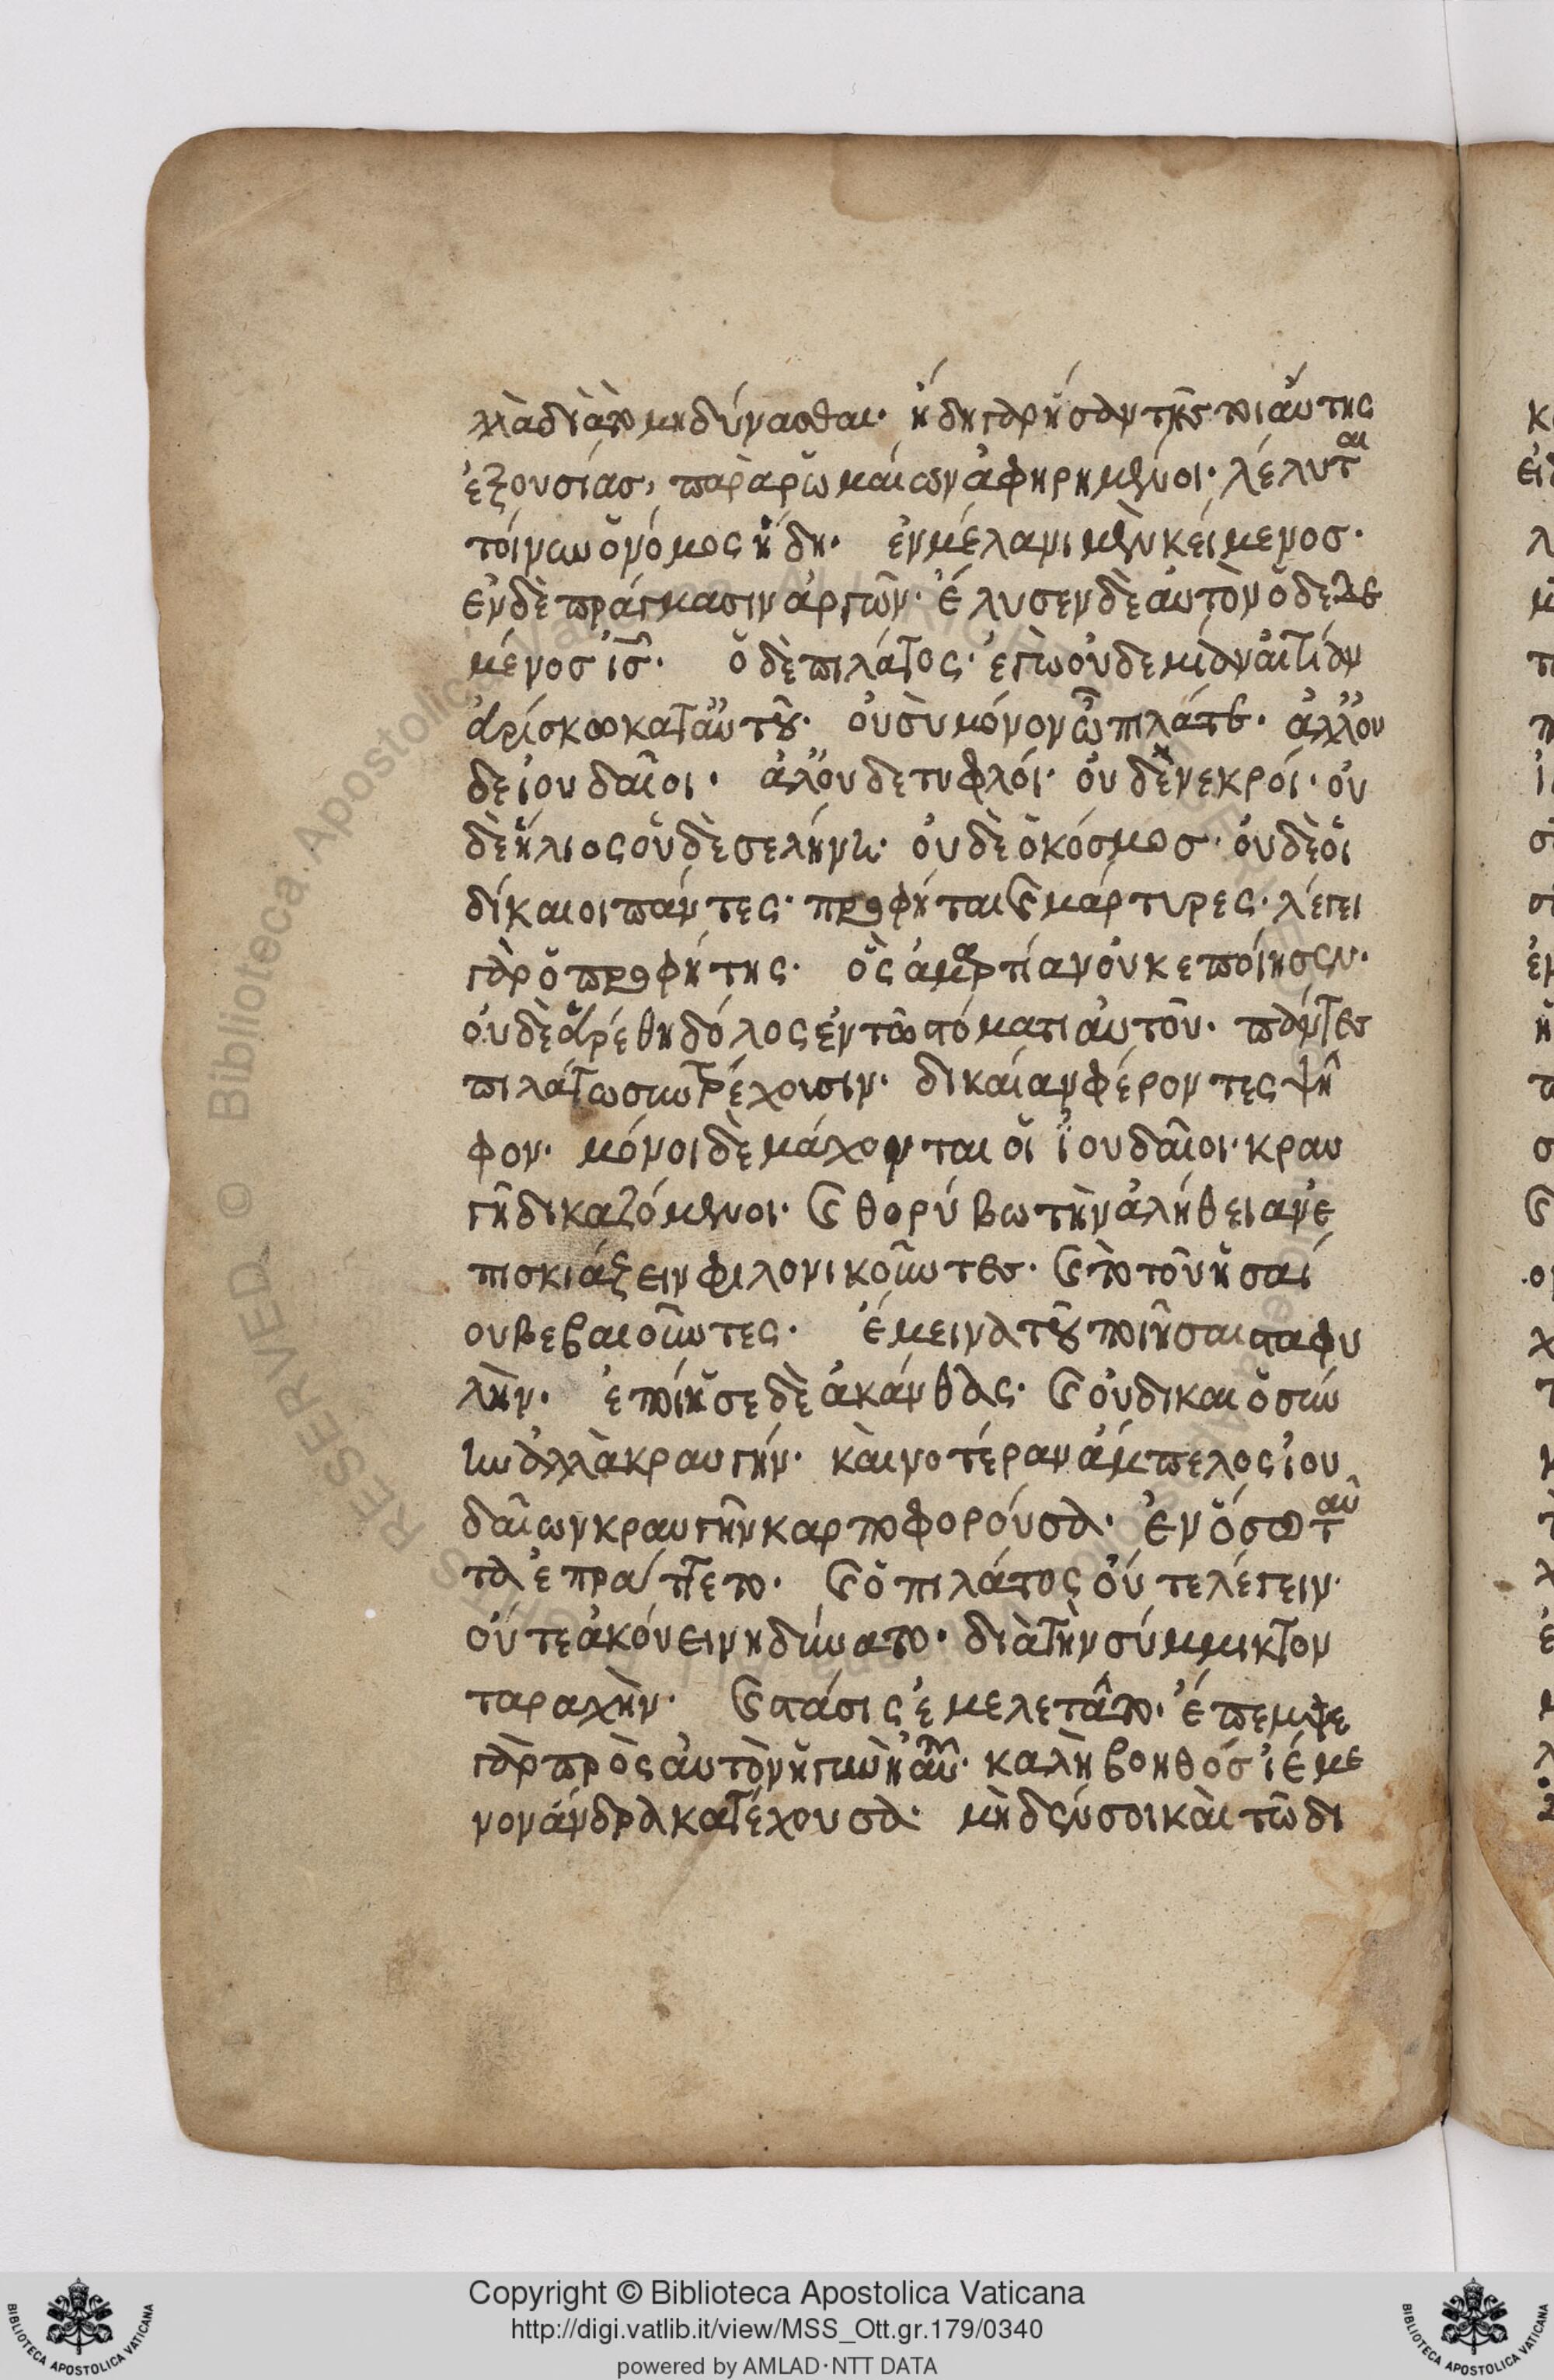 λλὰ διὰ τὸ μὴ δύνασθαι· ἤδη γὰρ ἦσαν τῆς τοιαύτης
ἐξουσίας, παρὰ ῥωμαίων ἀφηρημένοι· λέλυται
τοίνυν ὁ νόμος ἤδη· ἐν μέλανι μὲν κείμενος·
ἐν δὲ πράγμασιν ἀργῶν· ἔλυσεν δὲ αὐτὸν ὁ δεδε
μένος ἰς· ὁ δὲ πιλάτος· ἐγὼ οὐδεμίαν αἰτίαν
εὑρίσκω κατ αὐτοῦ· οὐ σὺ μόνον ὦ πιλάτε· ἀλλ ου
δε ἰουδαῖοι· ἀλ ουδε τυφλοί· οὐδὲ νεκροί· οὐ
δὲ ἥλιος οὐδὲ σελήνη· οὐδὲ ὁ κόσμος· οὐδὲ οἱ
δίκαιοι πάντες· προφήται καὶ μάρτυρες· λέγει
γὰρ ὁ προφήτης· ὃς ἁμαρτίαν οὐκ εποίησεν·
οὐδὲ εὑρέθη δόλος ἐν τῶ στόματι αὐτοῦ· πάντες
πιλάτω συντρέχουσιν· δικαίαν φέροντες ψῆ
φον· μόνοι δὲ μάχονται οἱ ἰουδαῖοι· κραυ
γῆ δικαζόμενοι· καὶ θορύβω τὴν ἀλήθειαν ἐ
πισκιάζειν φιλονικοῦντες· καὶ τὸ τοῦ ἡσαί
ου βεβαιοῦντες· ἔμεινα τοῦ ποιῆσαι σταφυ
λὴν· ἐποίησε δὲ ἀκάνθας· καὶ οὐ δικαιοσύ
νην ἀλλὰ κραυγήν· καινοτέραν ἄμπελος ἰου
δαίων κραυγῆν καρποφορούσα· ἐν ὅσω ταῦ
τα ἐπράττετο· καὶ ὁ πιλάτος οὔτε λέγειν·
οὔτε ἀκούειν ηδύνατο· διὰ τὴν σύμμικτον
ταραχὴν· καὶ στάσις ἐμελετᾶτο· ἔπεμψε
γὰρ πρὸς αὐτὸν ἡ γυνὴ αὐτοῦ· καλὴ βοηθός ἰέμε
νον ἄνδρα κατέχουσα· μὴδέν σοι καὶ τῶ δι
Copyright © Biblioteca Apostolica Vaticana
http://digi.vatlib.it/view/MSS_Ott.gr.179/0340
powered by AMLAD·NTT DATA